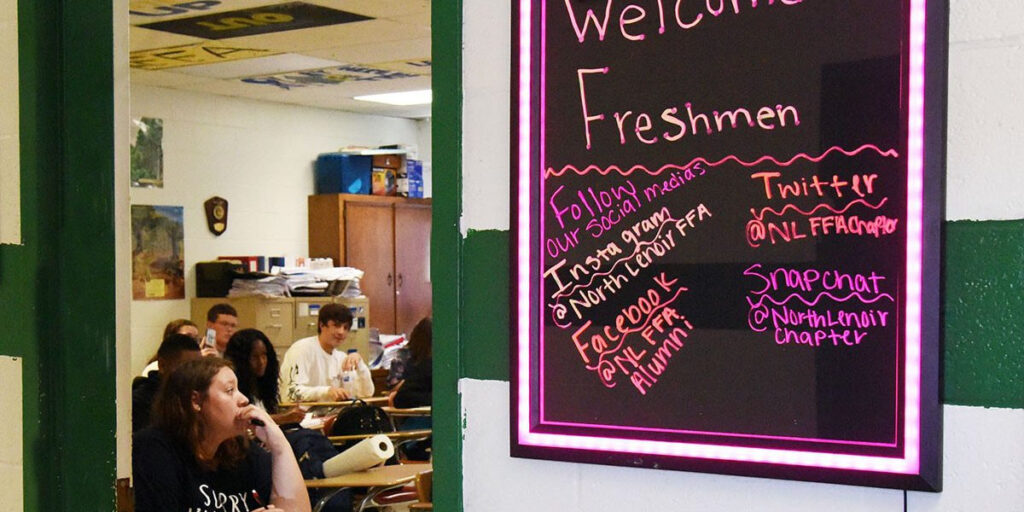 Welcome
Freshmen
Follow
our social medias
Instagram
@North Lenoir FFA
Facebook
@NL FFA
Alumni
Twitter
@NLFFAChapter
Snapchat
@NorthLenoir
Chapter
FFA